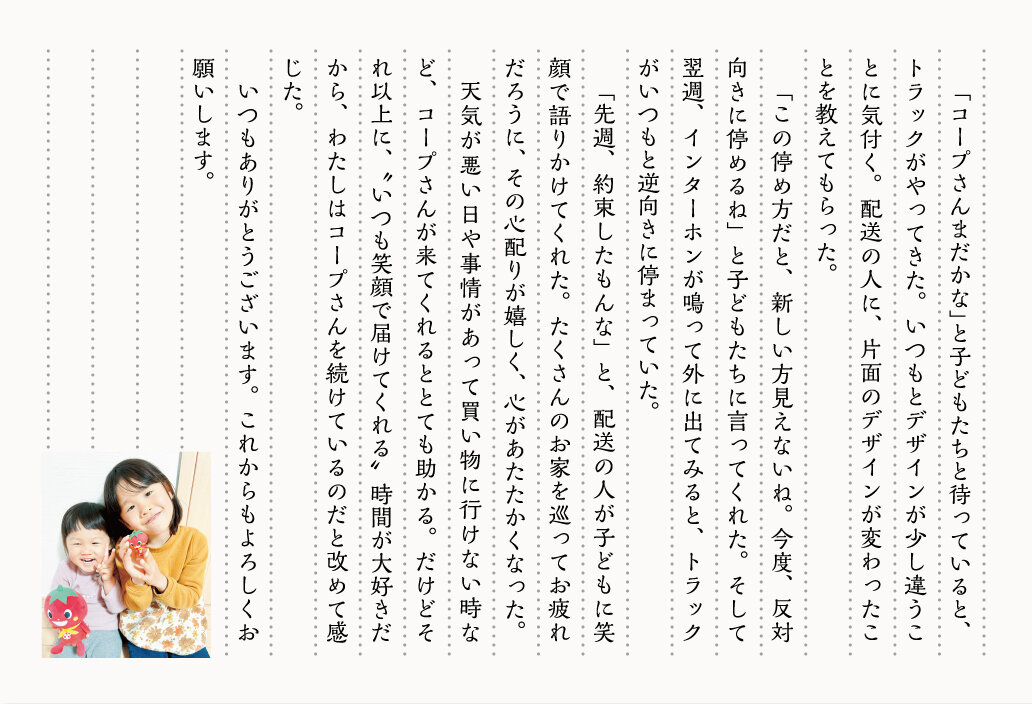 「コープさんまだかな」と子どもたちと待っていると、
トラックがやってきた。いつもとデザインが少し違うこ
とに気付く。配送の人に、片面のデザインが変わったこ
とを教えてもらった。
「この停め方だと、新しい方見えないね。今度、反対
向きに停めるね」と子どもたちに言ってくれた。そして
翌週、インターホンが鳴って外に出てみると、トラック
がいつもと逆向きに停まっていた。
「先週、約束したもんな」と、配送の人が子どもに笑
顔で語りかけてくれた。たくさんのお家を巡ってお疲れ
だろうに、その心配りが嬉しく、心があたたかくなった。
天気が悪い日や事情があって買い物に行けない時な
ど、コープさんが来てくれるととても助かる。だけどそ
れ以上に、〝いつも笑顔で届けてくれる〟時間が大好きだ
から、わたしはコープさんを続けているのだと改めて感
じた。
いつもありがとうございます。これからもよろしくお
願いします。